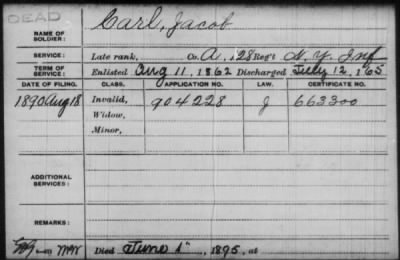 DEAD
NAME OF SOLDIER: Carl, Jacob
SERVICE: Late rank, Co. A, 128 Reg't N. Y. Inf
TERM OF SERVICE: Enlisted Aug 11, 1862 Discharged July 12, 1865
DATE OF FILING. CLASS. APPLICATION NO. LAW. CERTIFICATE NO.
1890 Aug 18 Invalid, 904228 J 663300
Widow,
Minor,
ADDITIONAL SERVICES:
REMARKS:
Died June 1", 1895, at